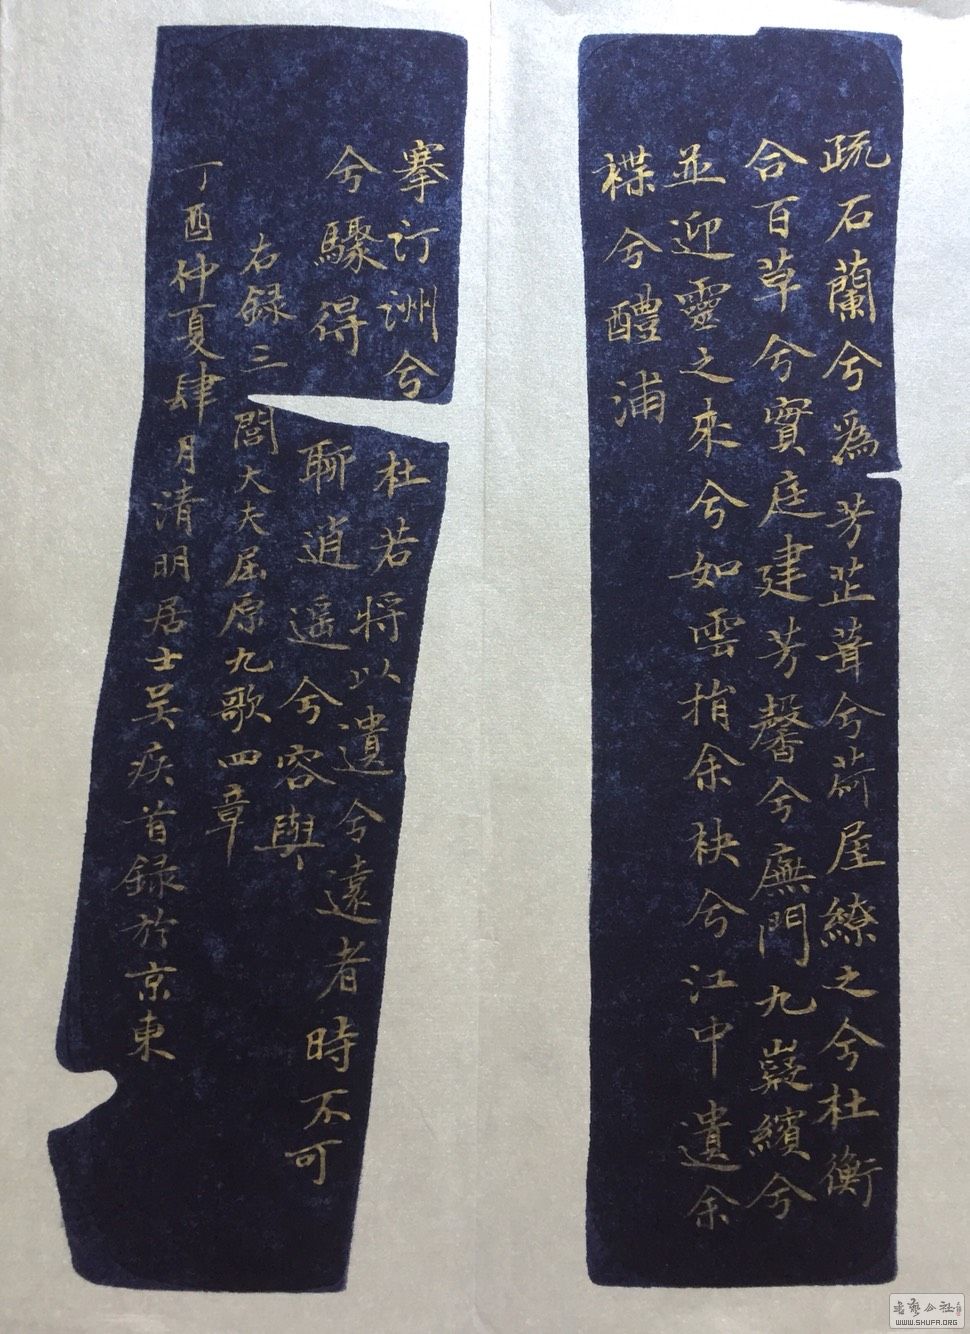 疏石蘭兮為芳芷葺兮荷屋繚之兮杜衡
合百草兮實庭建芳馨兮廡門九嶷繽兮
並迎靈之來兮如雲捐余袂兮江中遺余
褋兮醴浦
搴汀洲兮杜若將以遺兮遠者時不可
兮驟得聊逍遥兮容與
右録三閭大夫屈原九歌四章
丁酉仲夏肆月清明居士吴疾首録於京東
WWW.SHUFA.ORG